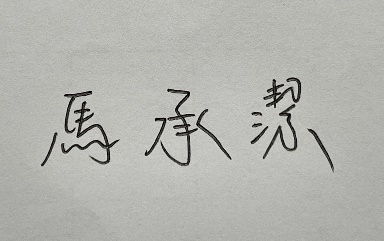 馬承潔